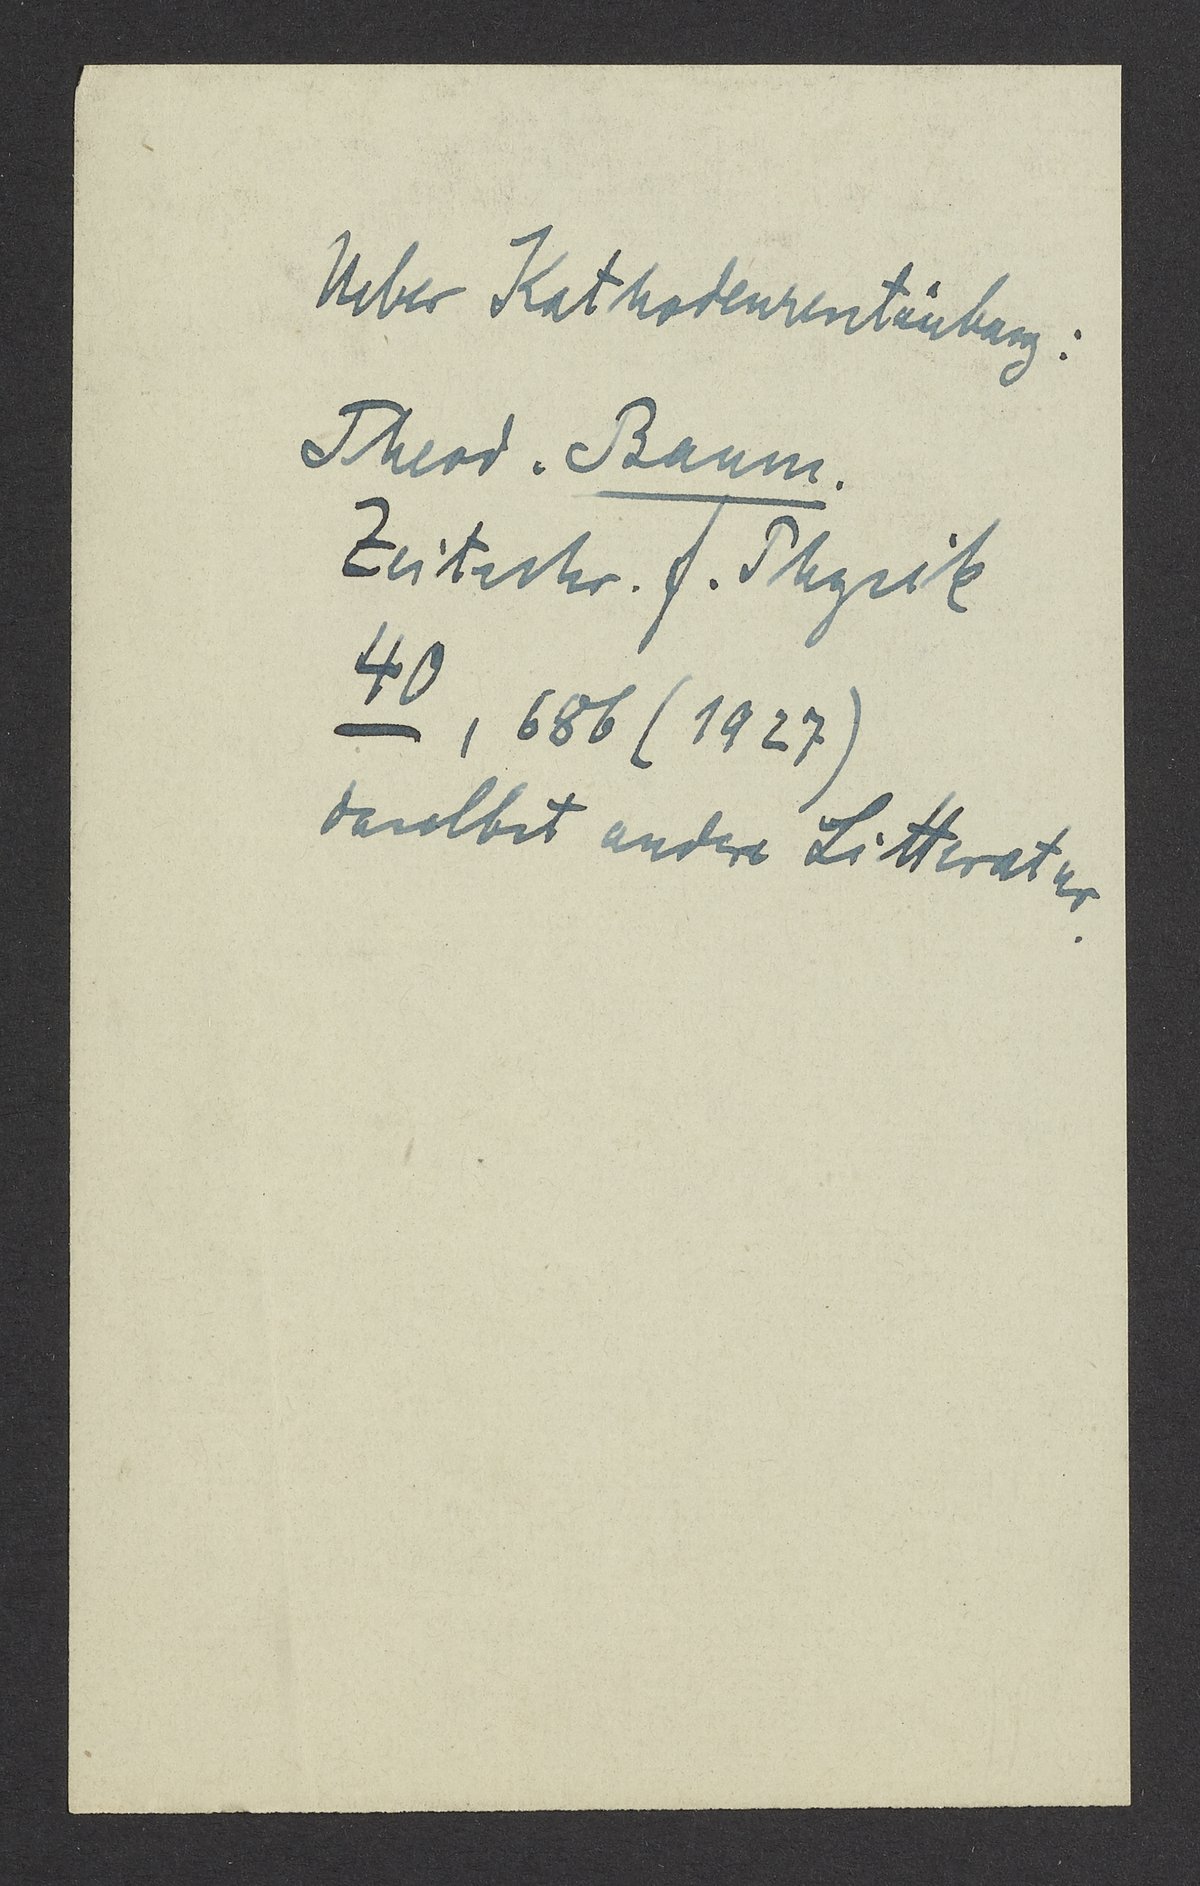 Ueber Kathodenzerstäubung:
Theod. Baum.
Zeitschr. f. Physik
40, 686 (1927)
daselbst andere Litteratur.